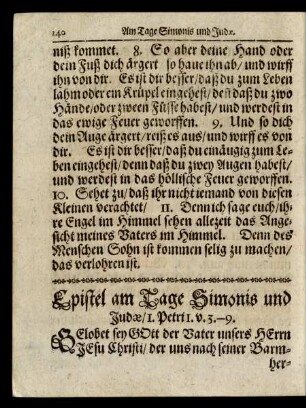 140 Am Tage Simonis und Judæ.
niß kommet. 8. So aber deine Hand oder
dein Fuß dich ärgert so haue ihn ab/ und wirff
ihn von dir. Es ist dir besser/ daß du zum Leben
lahm oder ein Krüpel eingehest/ deñ daß du zwo
Hände/ oder zween Füsse habest/ und werdest in
das ewige Feuer geworffen. 9. Und so dich
dein Auge ärgert/ reiß es aus/ und wirff es von
dir. Es ist dir besser/ daß du einäugig zum Le-
ben eingehest/ denn daß du zwey Augen habest/
und werdest in das höllische Feuer geworffen.
10. Sehet zu/ daß ihr nicht iemand von diesen
Kleinen verachtet/ 11. Denn ich sage euch/ ih-
re Engel im Himmel sehen allezeit das Ange-
sicht meines Vaters im Himmel. Denn des
Menschen Sohn ist kommen selig zu machen/
das verlohren ist.
Epistel am Tage Simonis und
Judæ/ 1. Petri 1. v. 3.–9.
GElobet sey GOtt der Vater unsers HErrn
JEsu Christi/ der uns nach seiner Barm-
her-